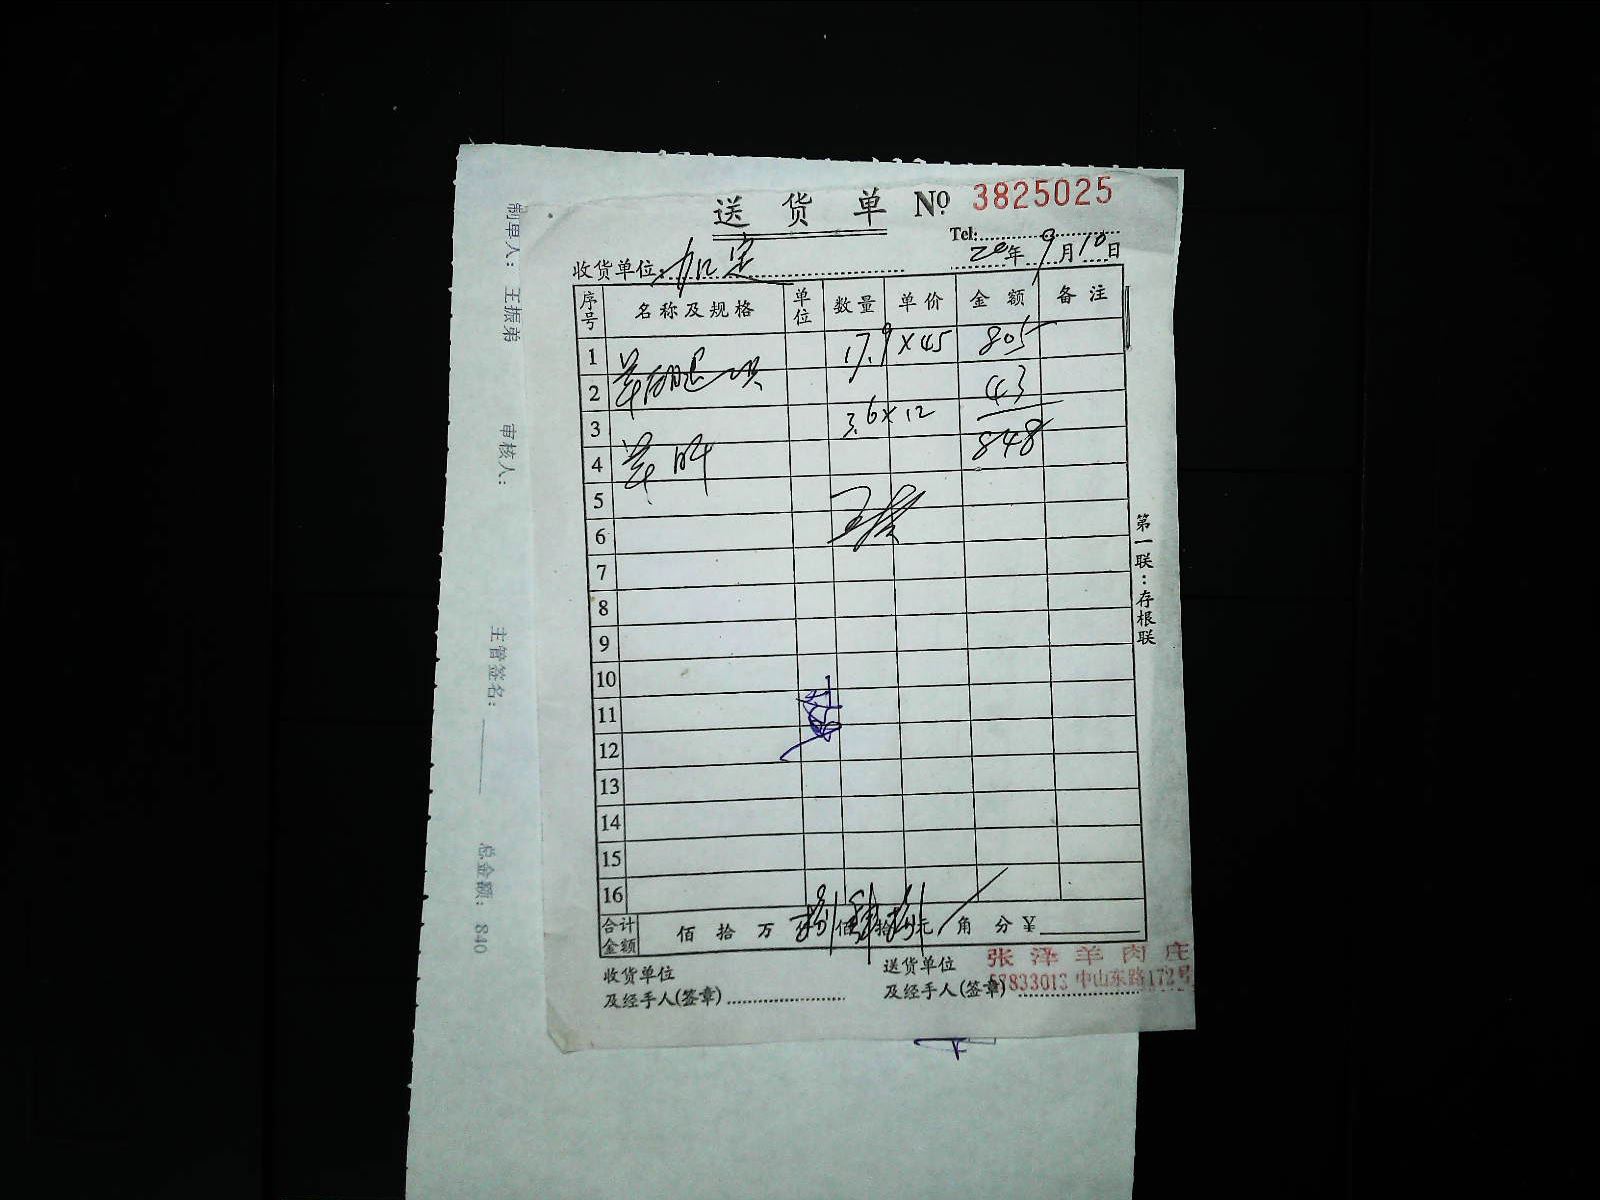 送货单 № 3825025
Tel:
收货单位: 加定 20年9月10日
序号 名称及规格 单位 数量 单价 金额 备注
1 17.9 × 45 805
2 羊 43
3 3.6 × 12
4 羊 848
5
6
7
8
9
10
11
12
13
14
15
16
合计金额 佰 拾 万 捌 佰 肆 拾 捌 元 角 分 ¥
收货单位
及经手人(签章)
送货单位
及经手人(签章)
张泽羊肉庄
57833013 中山东路172号
第一联:存根联
制单人: 王振弟
审核人:
主管签名:
总金额: 840